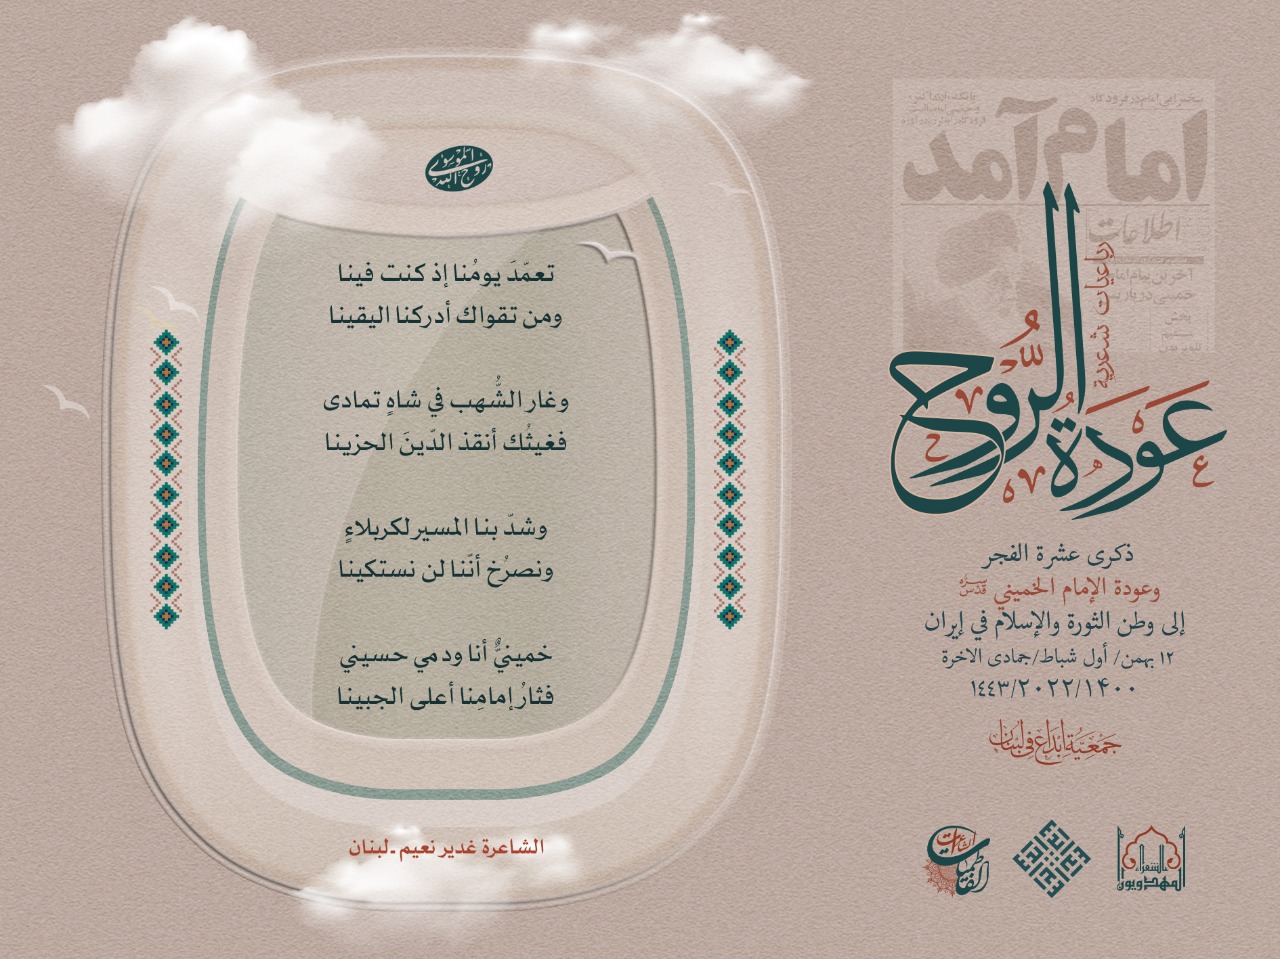 امام آمد
اطلاعات
عودة الرّوح
رباعيات شعرية
ذكرى عشرة الفجر
وعودة الإمام الخميني قدّس سرّه
إلى وطن الثورة والإسلام في إيران
١٢ بهمن/ أول شباط/جمادى الاخرة
١٤٤٣/٢٠٢٢/١٤٠٠
جمعية إبداع في لبنان
روح الله الموسوي
تعمّدَ يومُنا إذ كنت فينا
ومن تقواك أدركنا اليقينا
وغار الشُّهب في شاهٍ تمادى
فغيثُك أنقذ الدّينَ الحزينا
وشدّ بنا المسير لكربلاءٍ
ونصرُخ أنّنا لن نستكينا
خمينيٌّ أنا ودمي حسيني
فثارُ إمامِنا أعلى الجبينا
الشاعرة غدير نعيم ـ لبنان
الشاعرات الفاطميات
الشعراء المهدويون